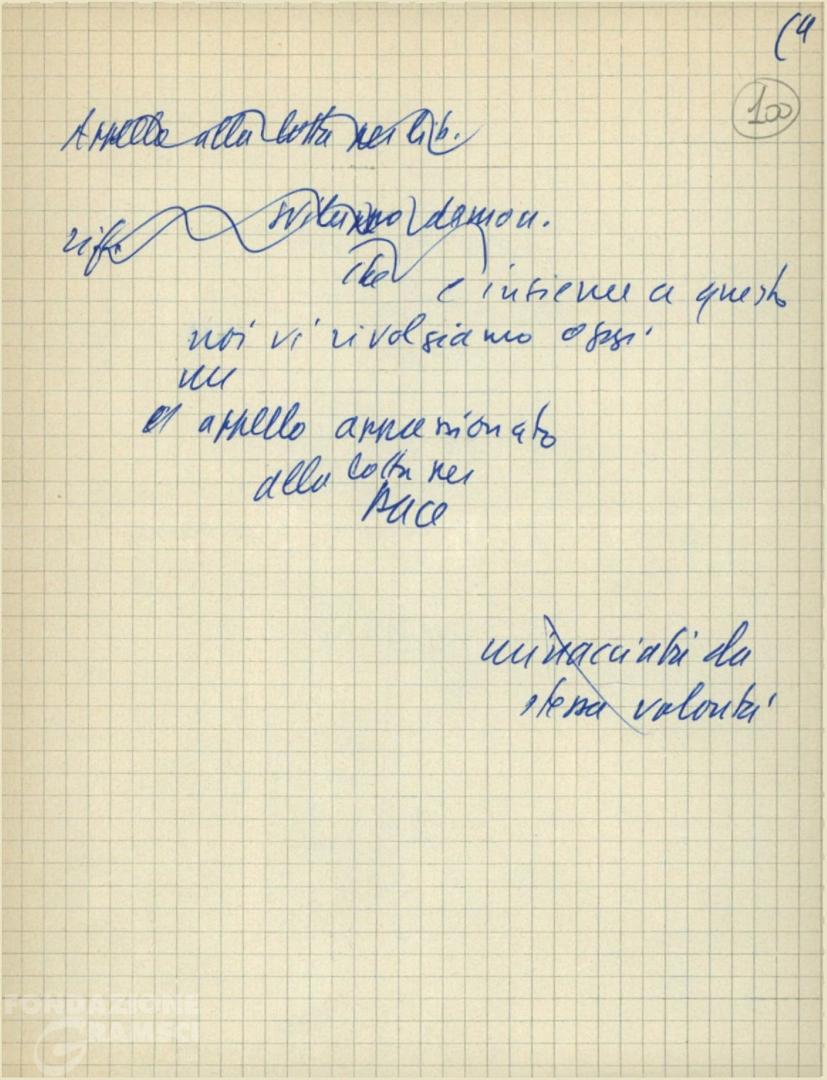 (4
100
Appello alla lotta per lib.
rif. sviluppo democr.
che
e insieme a questo
noi vi rivolgiamo oggi
un
appello appassionato
alla lotta per
pace
minacciata da
stessa volontà
FONDAZIONE
GRAMSCI